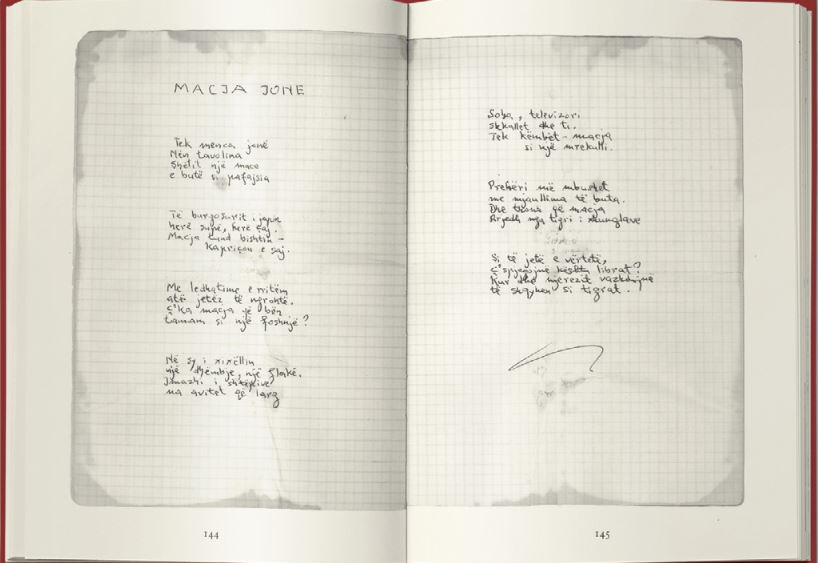 MACJA JONE
Tek menca jonë
Nën tavolina
Shëtit një mace
e butë si pafajsia
Të burgosurit i japin
herë supë, herë çaj.
Macja tund bishtin –
Kapriçon e saj.
Me ledhatime e rritëm
atë jetëz të ngrohtë.
Ç'ka macja që bën
tamam si një foshnjë?
Në sy i xixëllin
një dhëmbje, një flakë.
Imazhi i shtëpive
na avitet që larg
Soba, televizori
shkallët dhe ti.
Tek këmbët – macja
si një mrekulli.
Prehëri më mbushet
me mjaullima të buta.
Dhe thonë që macja
Rrjedh nga tigri i
Si të jetë e vërtetë,
ç'shpjegojnë kështu librat?
Kur dhe njerëzit vazhdojnë
të shqyhen si tigrat.
144
145